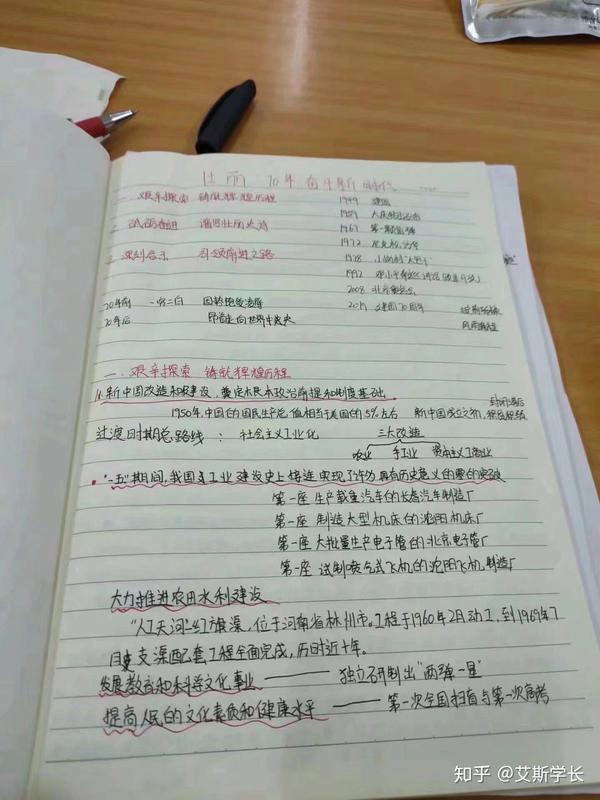 壮丽 70年 奋斗新时代
一. 艰辛探索 铸就辉煌历程 1949 建国
二. 砥砺奋进 谱写壮丽史诗 1959 大庆
三. 深刻启示 引领前进之路 1967 第一颗氢弹
1972
1978 小岗村"大包干"
1992 邓小平南巡讲话(改革开放)
2008 北京奥运会
70年前 一穷二白 2019 建国70周年
70年后
一. 艰辛探索 铸就辉煌历程
1. 新中国改造和建设,奠定根本政治前提和制度基础
1950年,中国的国民生产总值相当于美国的5%左右 新中国成立之初,积贫积弱
过渡时期总路线: 社会主义工业化 三大改造
农业 手工业 资本主义工商业
"一五"期间,我国在工业建设史上接连实现了许多具有历史意义的零的突破
第一座 生产载重汽车的长春汽车制造厂
第一座 制造大型机床的沈阳机床厂
第一座 大批量生产电子管的北京电子管厂
第一座 试制喷气式飞机的沈阳飞机制造厂
大力推进农田水利建设
"人工天河"-红旗渠,位于河南省林州市。工程于1960年2月动工,到1969年7
月支渠配套工程全面完成,历时近十年。
发展教育和科学文化事业 —— 独立研制出"两弹一星"
提高人民的文化素质和健康水平 —— 第一次全国扫盲与第一次高考
知乎 @艾斯学长